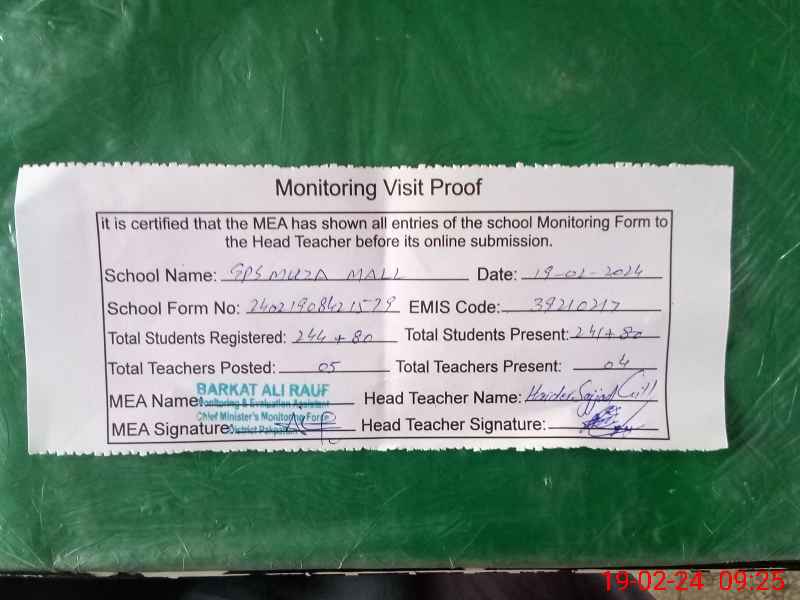 Monitoring Visit Proof
it is certified that the MEA has shown all entries of the school Monitoring Form to
the Head Teacher before its online submission.
School Name: GPS MURZA MALL Date: 19-02-2024
School Form No: 24021908421579 EMIS Code: 39210217
Total Students Registered: 244 + 80 Total Students Present: 241+80
Total Teachers Posted: 05 Total Teachers Present: 04
BARKAT ALI RAUF
MEA Name: Head Teacher Name: Haider Sajjad
Monitoring & Evaluation Assistant
Chief Minister's Monitoring Force
MEA Signature: Head Teacher Signature:
District Pakpattan
19-02-24 09:25